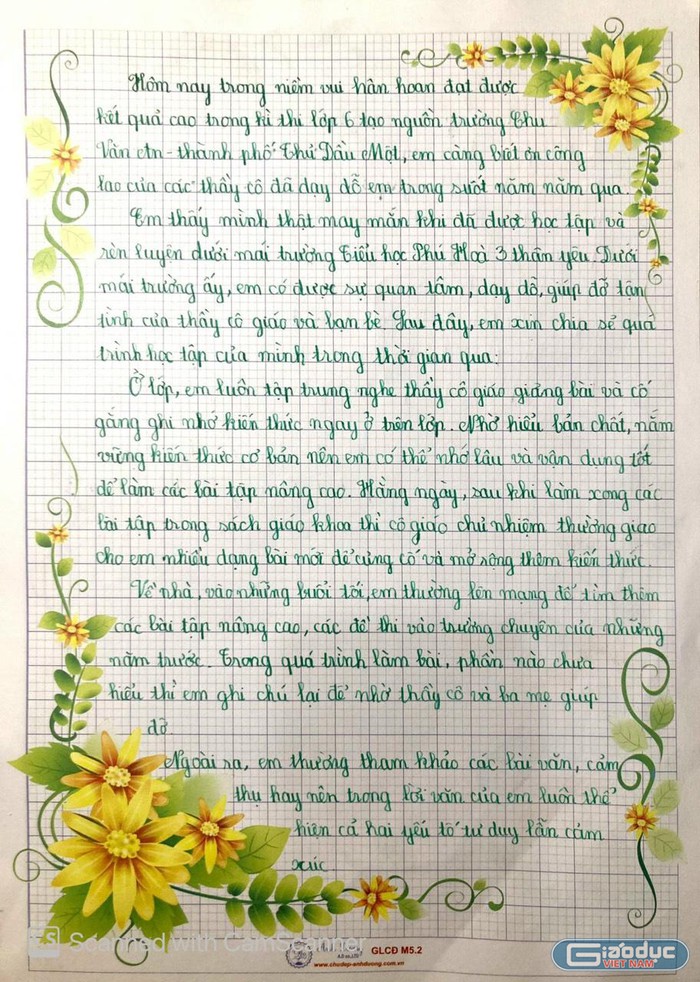 Hôm nay trong niềm vui hân hoan đạt được
kết quả cao trong kì thi lớp 6 tạo nguồn trường Chu
Văn An - thành phố Thủ Dầu Một, em càng biết ơn công
lao của các thầy cô đã dạy dỗ em trong suốt năm năm qua.
Em thấy mình thật may mắn khi đã được học tập và
rèn luyện dưới mái trường Tiểu học Phú Hoà 3 thân yêu. Dưới
mái trường ấy, em có được sự quan tâm, dạy dỗ, giúp đỡ tận
tình của thầy cô giáo và bạn bè. Sau đây, em xin chia sẻ quá
trình học tập của mình trong thời gian qua:
Ở lớp, em luôn tập trung nghe thầy cô giáo giảng bài và cố
gắng ghi nhớ kiến thức ngay ở trên lớp. Nhờ hiểu bản chất, nắm
vững kiến thức cơ bản nên em có thể nhớ lâu và vận dụng tốt
để làm các bài tập nâng cao. Hằng ngày, sau khi làm xong các
bài tập trong sách giáo khoa thì cô giáo chủ nhiệm thường giao
cho em nhiều dạng bài mới để củng cố và mở rộng thêm kiến thức.
Về nhà, vào những buổi tối, em thường lên mạng để tìm thêm
các bài tập nâng cao, các đề thi vào trường chuyên của những
năm trước. Trong quá trình làm bài, phần nào chưa
hiểu thì em ghi chú lại để nhờ thầy cô và ba mẹ giúp
đỡ.
Ngoài ra, em thường tham khảo các bài văn, cảm
thụ hay nên trong lời văn của em luôn thể
hiện cả hai yếu tố tư duy lẫn cảm
xúc.
CS Scanned with CamScanner
GLCĐ M5.2
www.chudep-anhduong.com.vn
Giáo dục
VIỆT NAM